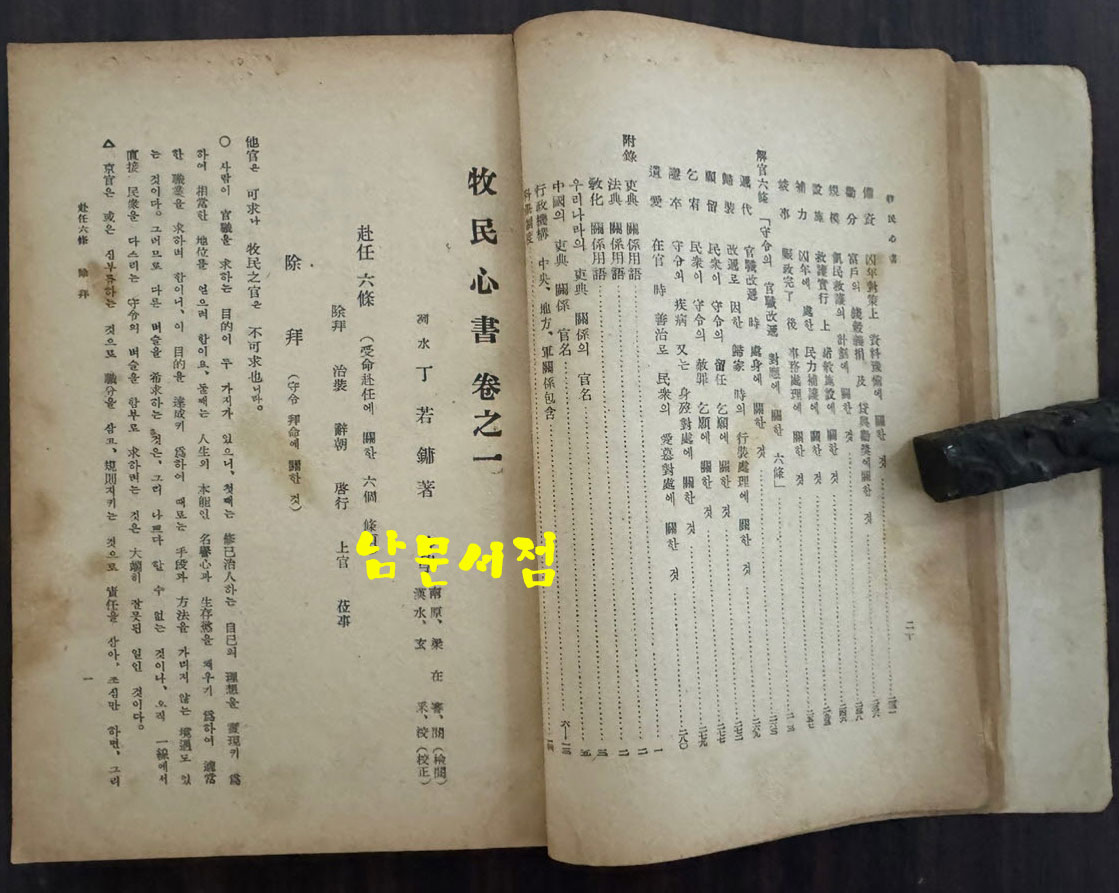 牧民心書
備資 凶年對策上 資料豫備에 關한 것
勸分 富戶의 錢穀義捐 及 貸與勸奬에 關한 것
規模 飢民救護의 計劃에 關한 것
設施 救護實行上 諸般施設에 關한 것
補力 凶年에 處한 民力補護에 關한 것
竣事 賑政完了 後 事務處理에 關한 것
解官六條 「守令의 官職改遞 對應에 關한 六條」
遞代 官職改遞 時 處身에 關한 것
歸裝 改遞로 因한 歸家 時의 行裝處理에 關한 것
願留 民衆이 守令의 留任 乞願에 關한 것
乞宥 民衆이 守令의 赦罪 乞願에 關한 것
隱卒 守令의 疾病 又는 身歿對處에 關한 것
遺愛 在官 時 善治로 民衆의 愛慕對處에 關한 것
附錄 吏典 關係用語
法典 關係用語
敎化 關係用語
우리나라의 吏典 關係의 官名
中國의 吏典 關係 官名
行政機構 中央、地方、軍關係包含
科擧制度
牧民心書 卷之一
洌水 丁若鏞 著
南原、梁在
漢水、玄采、
(校正)
赴任 六條 (受命赴任에 關한 六個 條
除拜 治裝 辭朝 啓行 上官 莅事
남문서점
除拜 (守令 拜命에 關한 것)
他官은 可求나 牧民之官은 不可求也니라。
○ 사람이 官職을 求하는 目的이 두 가지가 있으니、첫째는 修己治人하는 自己의 理想을 實現키 爲
하여 相當한 地位을 얻으려 함이요、둘째는 人生의 本能인 名譽心과 生存慾을 채우기 爲하여 適當
한 職業을 求하려 함이니、이 目的을 達成키 爲하여 때로는 手段과 方法을 가리지 않는 境遇도 있
는 것이다。그러므로 다른 벼슬을 希求하는 것은、그리 나쁘다 할 수 없는 것이나、오직 一線에서
直接 民衆을 다스리는 守令의 벼슬을 함부로 求하려는 것은 大端히 잘못된 일인 것이다。
△ 京官은 或은 심부름하는 것으로 職分을 삼고、規則지키는 것으로 責任을 삼아、조심만 하면、그러
赴任六條 除拜
一